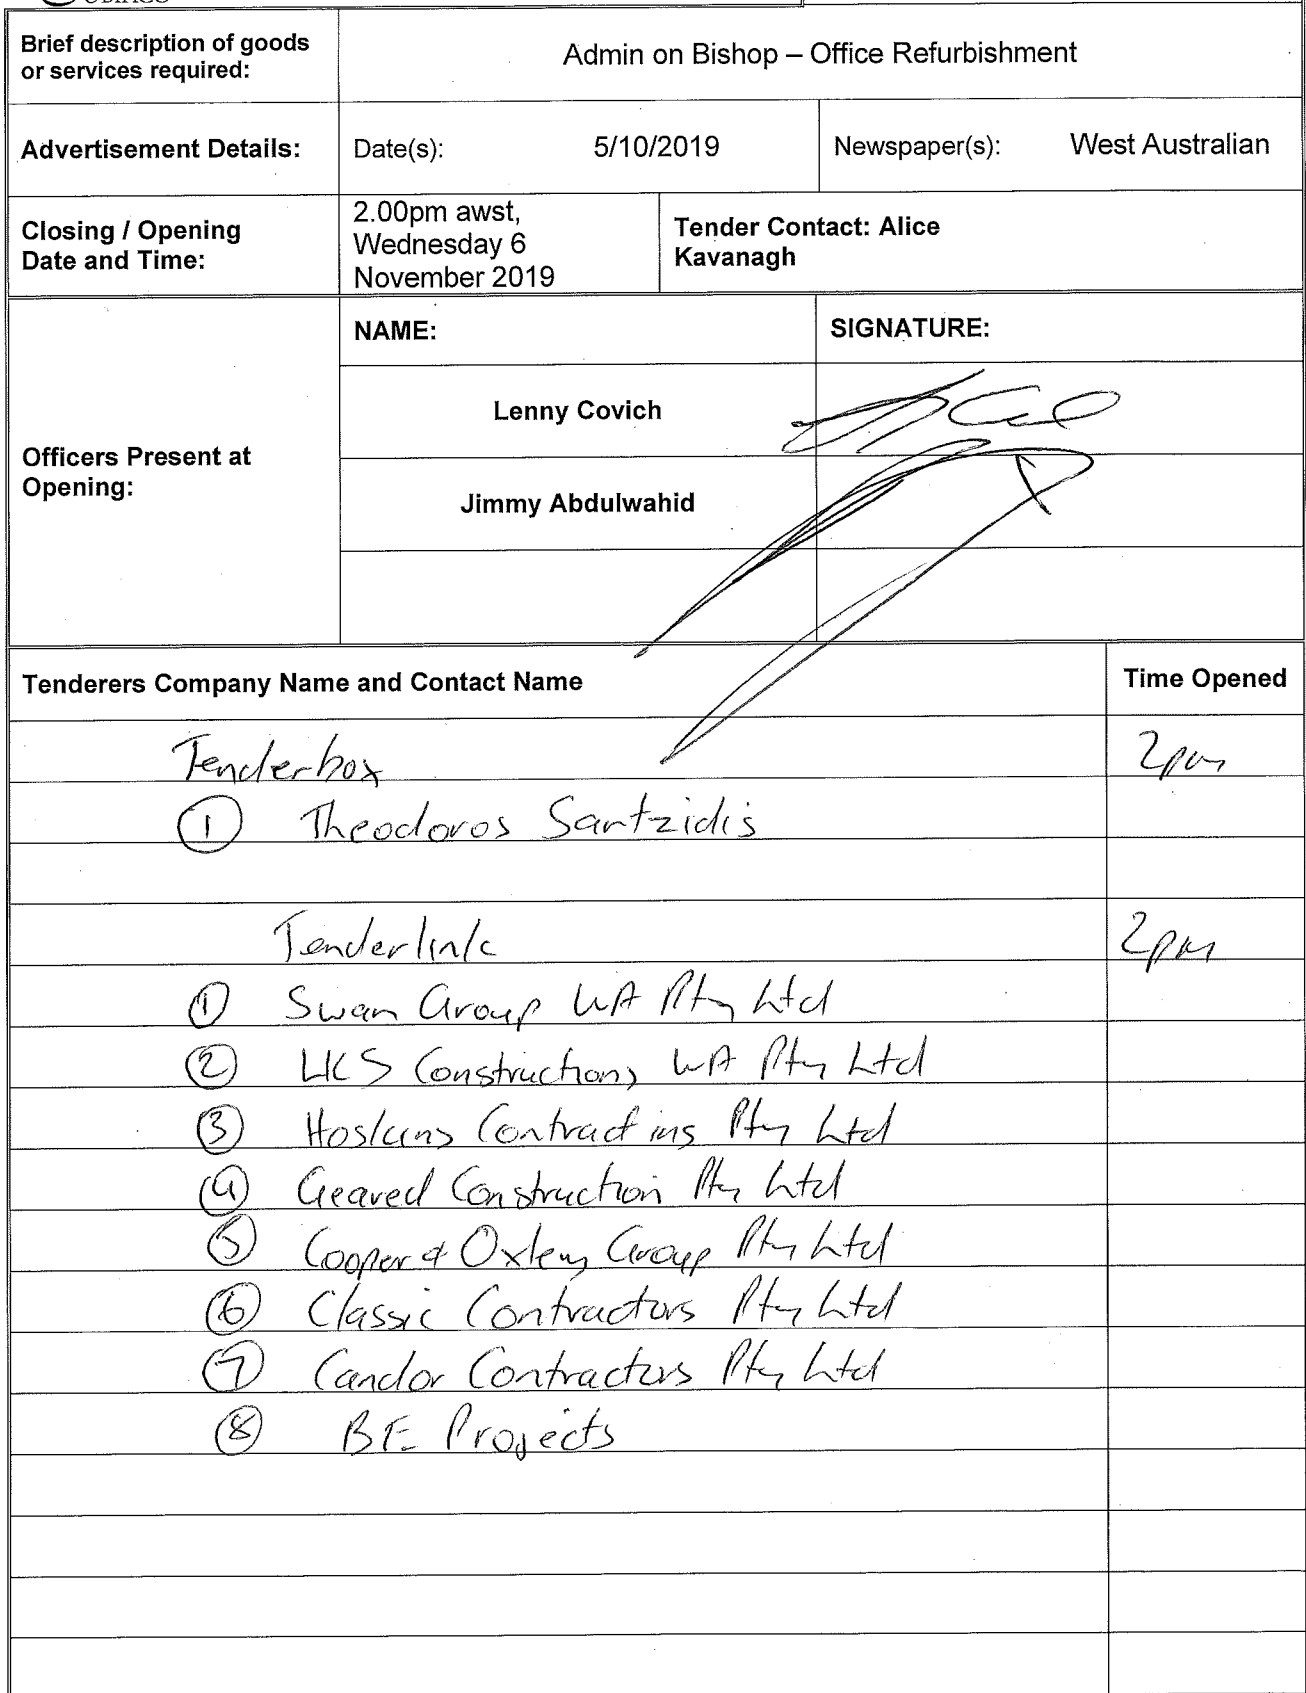 Brief description of goods
or services required:
Admin on Bishop – Office Refurbishment
Advertisement Details:
Date(s): 5/10/2019
Newspaper(s): West Australian
Closing / Opening
Date and Time:
2.00pm awst,
Wednesday 6
November 2019
Tender Contact: Alice
Kavanagh
Officers Present at
Opening:
NAME:
SIGNATURE:
Lenny Covich
Jimmy Abdulwahid
Tenderers Company Name and Contact Name
Time Opened
Tenderbox 2pm
① Theodoros Santzidis
Tenderlink 2pm
① Swan Group WA Pty Ltd
② LKS Constructions WA Pty Ltd
③ Hoskins Contracting Pty Ltd
④ Geared Construction Pty Ltd
⑤ Cooper & Oxley Group Pty Ltd
⑥ Classic Contractors Pty Ltd
⑦ Candor Contractors Pty Ltd
⑧ BE Projects